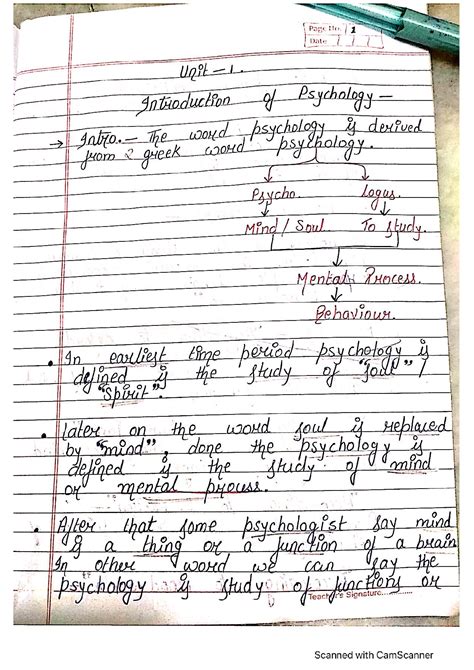 Page No. 1
Date
Unit - 1.
Introduction of Psychology -
→ Intro. - The word psychology is derived
from 2 greek word psychology.
Psycho. Logus.
Mind / Soul. To study.
Mental Process.
Behaviour.
• In earliest time period psychology is
defined is the study of "soul" /
"spirit".
• Later on the word soul is replaced
by "mind", done the psychology is
defined is the study of mind
or mental process.
• After that some psychologist say mind
is a thing or a function of a brain
In other word we can say the
psychology is study of functions or
Teacher's Signature
Scanned with CamScanner